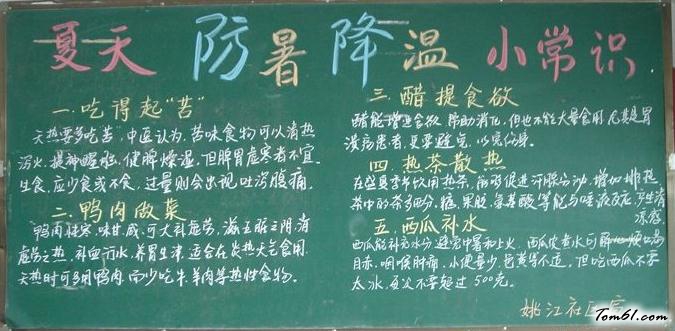 夏天 防暑降温 小常识
一.吃得起"苦"
天热要多吃苦，中医认为，苦味食物可以清热
泻火、提神醒脑、健脾燥湿，但脾胃虚寒者不宜
生食，应少食或不食，过量则会出现吐泻腹痛。
二.鸭肉做菜
鸭肉性寒、味甘咸，可大补虚劳，滋五脏之阴，清
虚劳之热、补血行水、养胃生津，适合在炎热天气食用
天热时可多用鸭肉，而少吃牛、羊肉等热性食物。
三.醋提食欲
醋能增进食欲，帮助消化，但也不能大量食用，尤其是胃
溃疡患者，更要避免，以免伤身。
四.热茶散热
在盛夏季节饮用热茶，能够促进汗腺分泌，增加排热
茶中的茶多酚、糖、果胶、氨基酸等能与唾液反应，产生清凉感
五.西瓜补水
西瓜能补充水分，避免中暑和上火，西瓜皮煮水可解心烦口渴
目赤、咽喉肿痛、小便量少、色黄等不适，但吃西瓜不要
太冰，每次不要超过500克。
姚江社区
Tom61.com